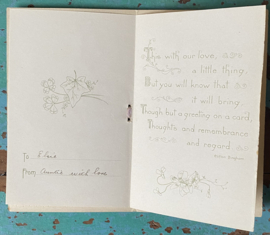 To
From Auntie with love
The with our love
a little thing.
But you will know that
it will bring.
Though but a greeting on a card,
Thoughts and remembrance
and regard